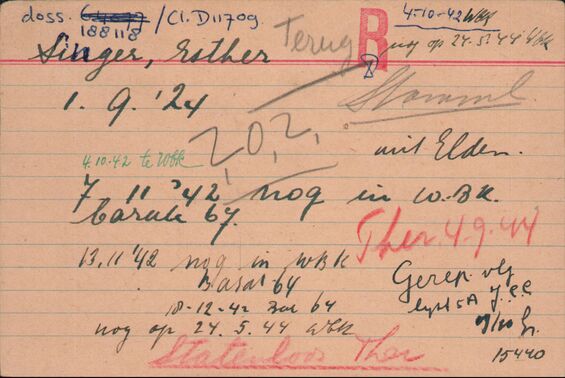 doss. 188118 / Cl. D1170g.
R
4-10-42 WBK
Singer, Esther
Terug
nog op 24.5.44 WBK
1. 9. '24
Stamml
2,0,2,
mit Elden.
4.10.42 te WBK
7 11 '42 nog in W.BK.
barak 67.
Ther 4.9.44
13.11 '42 nog in WBK
Barak 64
Gerep. vlg
lijst 5A
18-12-42 Bar 64
nog op 24.5.44 WBK
15440
Statenloos Ther